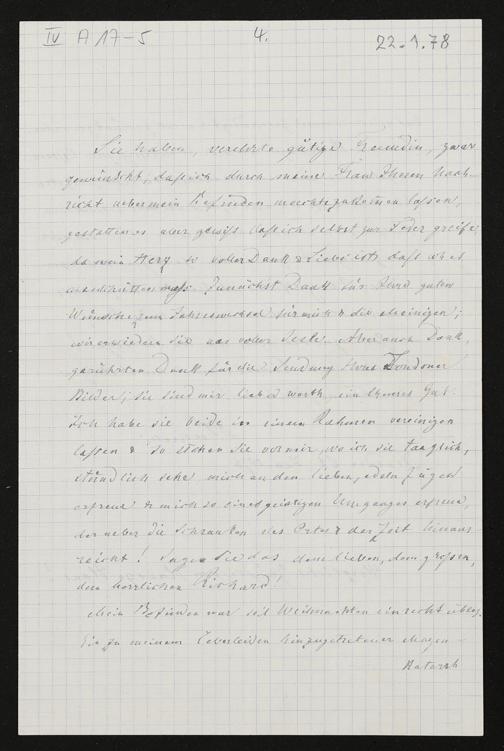 IV A 17-5 4. 22.1.78
Sie haben, verehrte gütige Freundin, zwar
gewünscht, daß ich durch meine Frau Ihnen Nach-
richt ueber mein Befinden möchte zukommen lassen,
gestatten es aber gewiß daß ich selbst zur Feder greife,
da mein Herz so voller Dank & Liebe ist, daß ich es
ausschütten muß. Zunächst Dank für Ihre guten
Wünsche zum Jahreswechsel für mich & die Meinigen;
wir erwiedern Sie aus voller Seele. Aber auch Dank,
gerührten Dank für die Sendung Ihrer Londoner
Bilder; sie sind mir lieb & werth, ein theures Gut.
Ich habe sie beide in einem Rahmen vereinigen
lassen & so stehen Sie vor mir, wo ich sie taeglich,
stündlich sehe mich an den lieben, edeln Zügen
erfreue & mich so eines geistigen Umganges erfreue,
der ueber die Schranken des Ortes & der Zeit hinaus
reicht! Sagen Sie das dem lieben, dem großen,
dem herrlichen Richard!
Mein Befinden war seit Weihnachten ein recht übles.
Ein zu meinem Leberleiden hinzugetretener Magen-
Katarrh